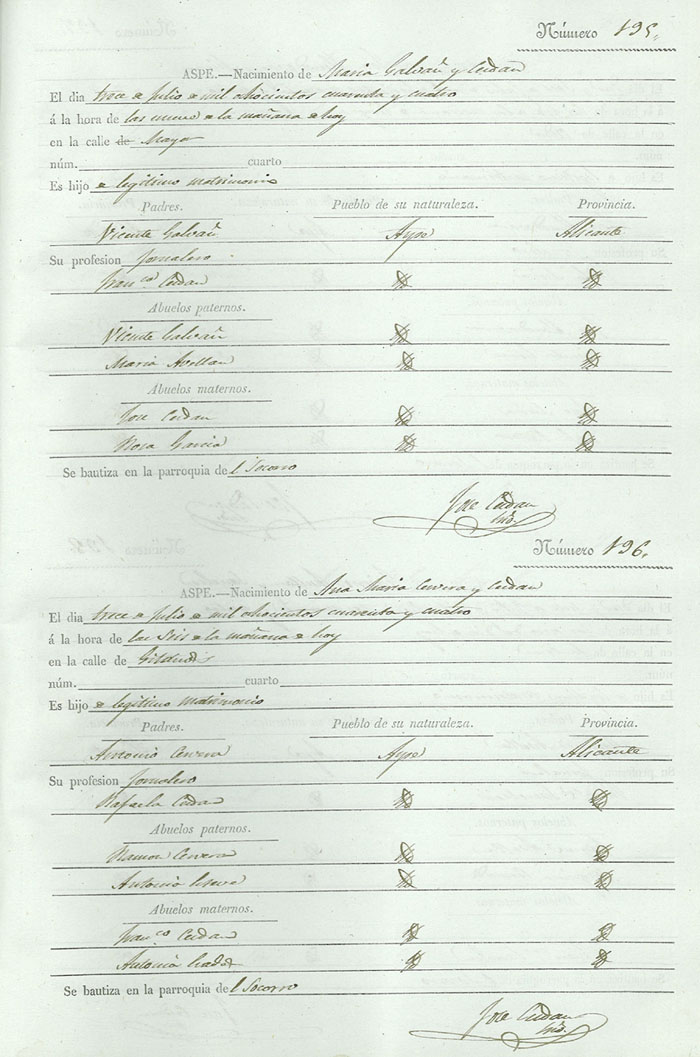 Número 195.
ASPE.—Nacimiento de Maria Galvañ y Cerdan
El dia trece de Julio de mil ochocientos cuarenta y cuatro
á la hora de las nueve de la mañana de hoy
en la calle de Mayor
núm. cuarto
Es hijo de legitimo matrimonio
Padres. Pueblo de su naturaleza. Provincia.
Vicente Galvañ Aspe Alicante
Su profesion Jornalero
Fran.ca Cerdan
Abuelos paternos.
Vicente Galvañ
Maria Avellan
Abuelos maternos.
Jose Cerdan
Rosa Garcia
Se bautiza en la parroquia del Socorro
Jose Cerdan
Número 196.
ASPE.—Nacimiento de Ana Maria Cervera y Cerdan
El dia trece de Julio de mil ochocientos cuarenta y cuatro
á la hora de las seis de la mañana de hoy
en la calle de
núm. cuarto
Es hijo de legitimo matrimonio
Padres. Pueblo de su naturaleza. Provincia.
Antonio Cervera Aspe Alicante
Su profesion Jornalero
Rafaela Cerdan
Abuelos paternos.
Ramon Cervera
Antonia
Abuelos maternos.
Fran.co Cerdan
Antonia
Se bautiza en la parroquia de l Socorro
Jose Cerdan